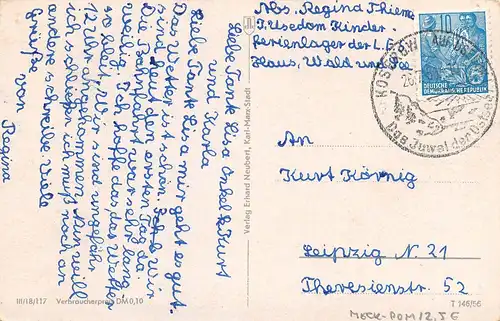 Liebe Tante Lisa Onkel Kurt
und Karla
Liebe Tante Lisa mir geht es gut.
Das Wetter ist schön. Jetzt wir
sind heut den ersten Tag da.
Die Bahnfahrt war sehr lang-
weilig. Ich hoffe das das Wetter
so bleibt. Wir sind ungefähr
12 Uhr angekommen. Nun will
ich schließen ich muß noch an
andere schreiben. Viele
Grüße von
Regina
III/18/117 Verbraucherpreis DM 0,10
Verlag Erhard Neubert, Karl-Marx-Stadt
Abs. Regina Thieme
Usedom Kinder
ferienlager der L.
Haus, Wald und
DEUTSCHE
DEMOKRATISCHE REPUBLIK
KOSEROW AUF USEDOM
Das Juwel der Ostsee
An
Kurt Körnig
Leipzig N. 21
Theresienstr. 52
T 146/56
MECK-POM 12,5 E